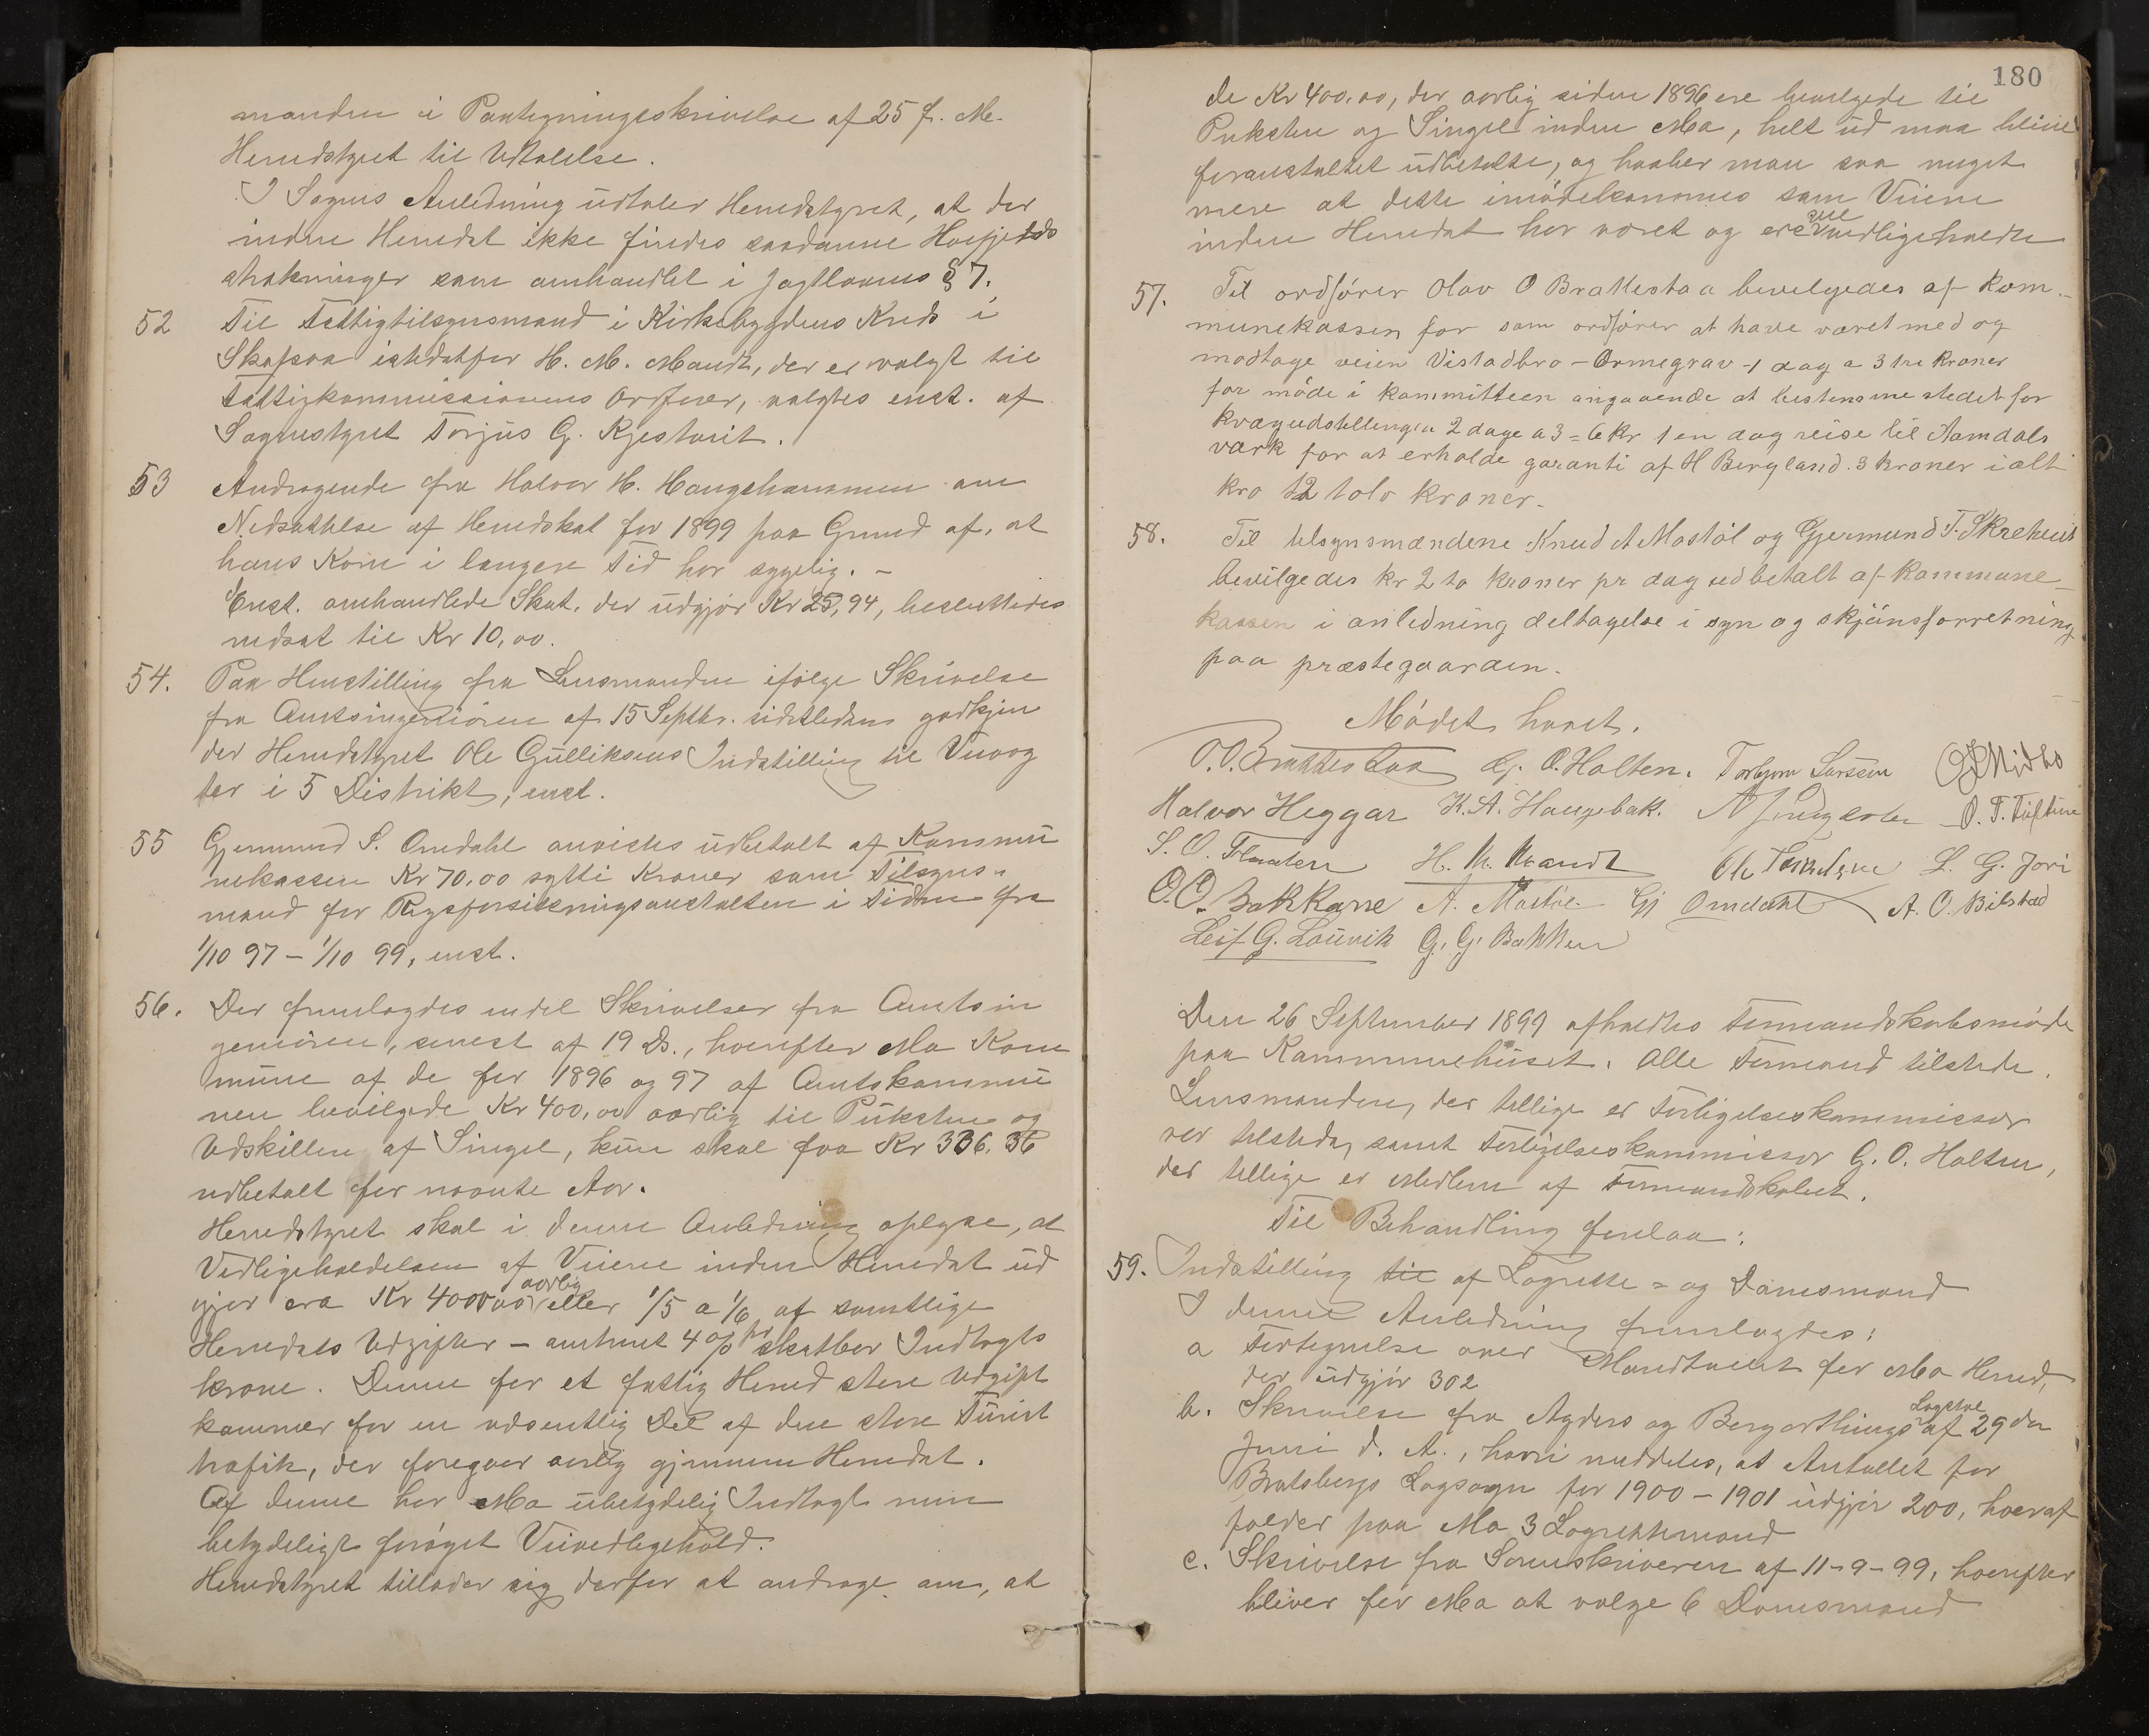 manden i Paategningsskrivelse af 25 f. M.
Herredstyret til Udtalelse.
I Sagens Anledning udtaler Herredstyret, at der
inden Herredet ikke findes saadanne Høifjelds
strækninger som omhandlet i Jagtlovens § 7.
52 Til Fattigtilsynsmand i Kirkebygdens Kreds i
Skafsaa istedetfor H. M. Mandt, der er valgt til
Fattigkommissionens Ordfører, valgtes enst. af
Sognestyret Torjus G. Kjestveit.
53 Andragende fra Halvor H. Haugshammen om
Nedsættelse af Herredskat for 1899 paa Grund af, at
hans Kone i længere Tid har sygelig. –
Enst. omhandlede Skat, der udgjør Kr 25,94, besluttedes
nedsat til Kr 10,00.
54. Paa Henstilling fra Lensmanden ifølge Skrivelse
fra Amtsingeniøren af 15 Septbr. sidstleden godkjen
der Herredstyret Ole Gulliksens Indstilling til Veivog
ter i 5 Distrikt, enst.
55 Gjermund S. Omdahl anvistes udbetalt af Kommu
nekassen Kr 70,00 sytti Kroner som Tilsyns-
mand for Rigsforsikringsanstalten i Tiden fra
1/10 97 – 1/10 99, enst.
56. Der fremlagdes endel Skrivelser fra Amtsin
geniøren, senest af 19 Ds., hvorefter Mo Kom
mune af de for 1896 og 97 af Amtskommu
nen bevilgede Kr 400,00 aarlig til Puksten og
Udskillen af Singel, kun skal faa Kr 336,36
udbetalt for nævnte Aar.
Herredstyret skal i denne Anledning oplyse, at
Vedligeholdelsen af Veiene inden Herredet ud
gjør cra Kr 4000,00 aarlig eller 1/5 a 1/6 af samtlige
Herredets Udgifter – omtrent 4 % pr skatbar Indtægts
krone. Denne for et fattig Herred store Udgift
kommer for en væsentlig Del af den store Turist
trafik, der foregaar aarlig gjennem Herredet.
Af denne har Mo ubetydelig Indtægt men
betydeligt forøget Veivedligehold.
Herredstyret tillader sig derfor at andrage om, at
180
de Kr 400,00, der aarlig siden 1896 ere bevilgede til
Puksten og Singel inden Mo, helt ud maa blive
foranstaltet udbetalte, og haaber man saa meget
mere at dette imødekommes som Veiene
inden Herredet har været og ere vel vedligeholdte
57. Til ordfører Olav O Brattestaa bevilgedes af kom-
munekassen for som ordfører at have været med og
modtage veien Vistadbro – Ormegrav – 1 dag a 3 tre kroner
for møde i kommitteen angaaende at bestemme stedet for
kvægudstillingen 2 dage a 3 = 6 kr 1 en dag reise til Aamdals
værk for at erholde garanti af H Bergland. 3 kroner i alt
kro 12 tolv kroner.
58. Til tilsynsmændene Knud A Mostøl og Gjermund T. Skreheit
bevilgedes kr 2 to kroner pr dag udbetalt af kommune-
kassen i anledning deltagelse i syn og skjønsforretning
paa præstegaarden.
Mødet hævet.
O. O. Brattestaa G. O. Holten. Torbjørn Larssen O J Midbø
Halvor Heggar K. A. Haugebak. O. T. Tuftene
S. O. Flaaten H. M. Mandt L. G. Jori
O. O. Bakkane A. Mostøl Gj Omdahl A. O. Bilstad
Leif G. Lauvik G. G. Bakken
Den 26 September 1899 afholdtes Formandskabsmøde
paa Kommunehuset. Alle Formænd tilstede.
Lensmanden, der tillige er Forligelseskommissær
var tilstede, samt Forligelseskommissær G. O. Holten,
der tillige er Medlem af Formandskabet.
Til Behandling forelaa:
59. Indstilling til af Lagrette- og Domsmænd
I denne Anledning fremlagdes:
a Fortegnelse over Mandtallet for Mo Herred,
der udgjør 302
b. Skrivelse fra Agders og Bergarthings Lagstol af 29 de
Juni d. A., hvori meddeles, at Antallet for
Bratsbergs Lagsogn for 1900 – 1901 udgjør 200, hvoraf
falder paa Mo 3 Lagrettemænd
c. Skrivelse fra Sorenskriveren af 11-9-99, hvorefter
bliver for Mo at vælge 6 Domsmænd